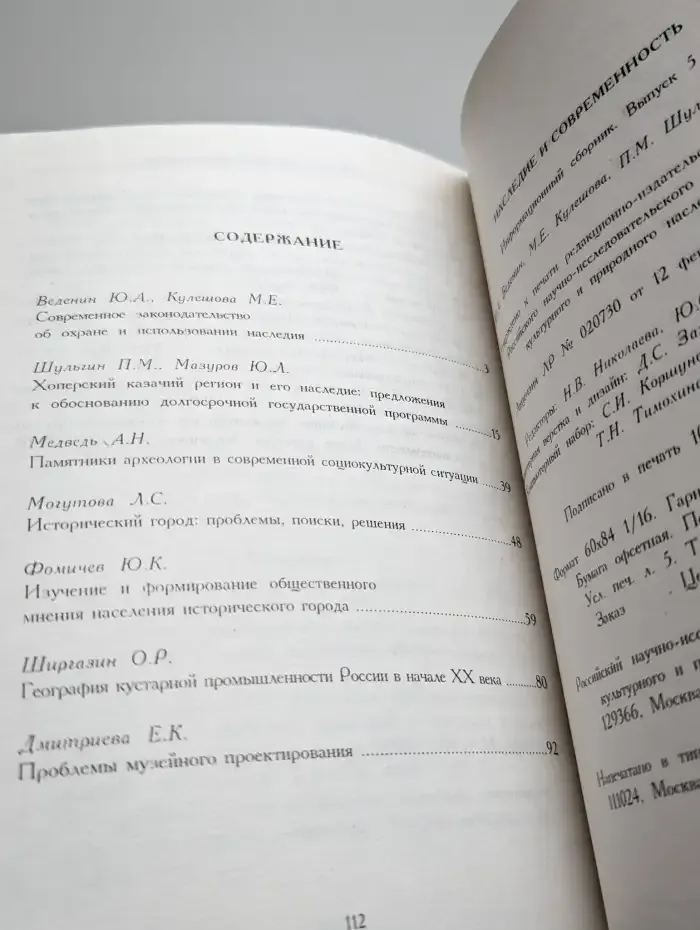 СОДЕРЖАНИЕ
Веденин Ю.А., Кулешова М.Е.
Современное законодательство
об охране и использовании наследия 3
Шульгин П.М.. Мазуров Ю.Л.
Хоперский казачий регион и его наследие: предложения
к обоснованию долгосрочной государственной программы 15
Медведь А.Н.
Памятники археологии в современной социокультурной ситуации 39
Могутова Л.С.
Исторический город: проблемы, поиски, решения 48
Фомичев Ю.К.
Изучение и формирование общественного
мнения населения исторического города 59
Ширгазин О.Р.
География кустарной промышленности России в начале XX века 80
Дмитриева Е.К.
Проблемы музейного проектирования 92
112
НАСЛЕДИЕ И СОВРЕМЕННОСТЬ
Информационный сборник. Выпуск 5
Веденин, М.Е. Кулешова, П.М.
к печати
культурного и природного
ЛР № 020730 от 12
Н.В. Николаева, Ю.
верстка и дизайн: Д.С.
набор: С.И.
Т.Н.
Подписано в печать
Формат 60x84 1/16.
Бумага офсетная.
Усл. печ. л. 5.
Заказ
Российский
культурного и
129366, Москва
Напечатано в
111024, Москва